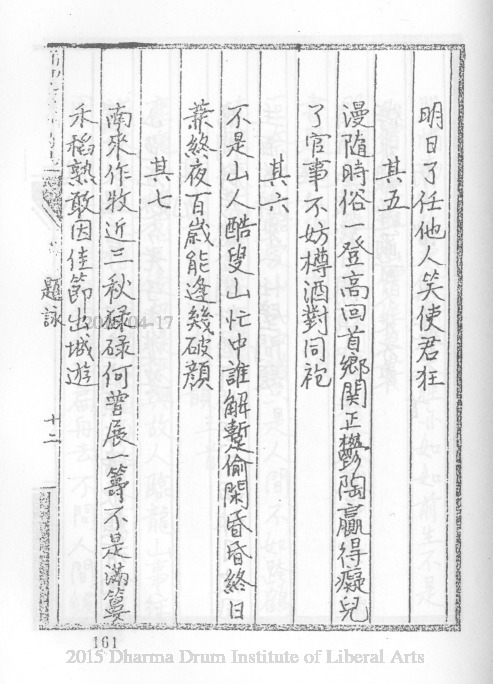 明日了任他人笑使君狂
其五
漫隨時俗一登高回首鄉関正鬱陶贏得癡兒
了官事不妨樽酒對同袍
其六
不是山人酷叟山忙中誰解蹔偷閑昏昏終日
葉終夜百歲能逢幾破顏
其七
南來作牧近三秋碌碌何曾展一籌不是滿篝
禾稻熟敢因佳節出城遊
題詠
十二
161
2015 Dharma Drum Institute of Liberal Arts